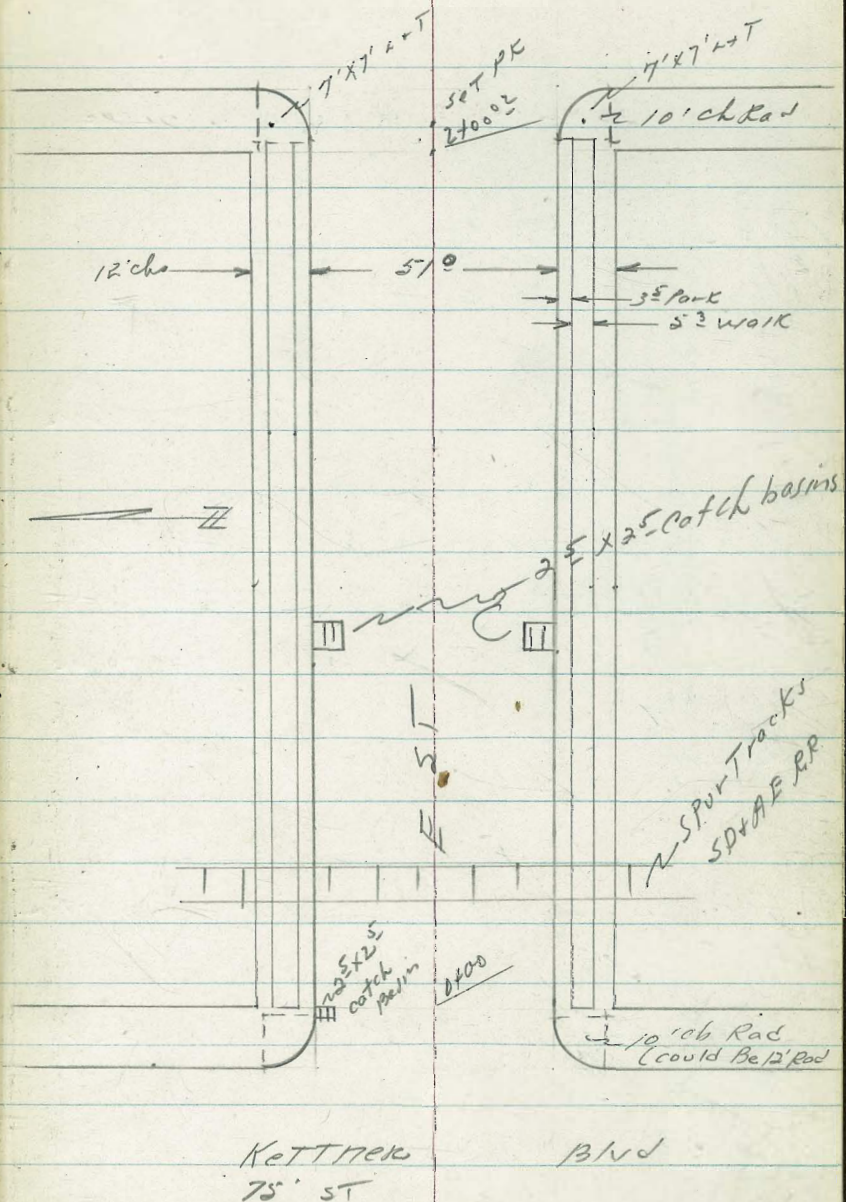 7'x7' L+T
Set PK
2+00⁰²
7'x7' L+T
10' cb Rad
12' cbs
51⁰
3⁵ Park
5³ Walk
N
2⁵ x 2⁵ Catch basins
E ST
Spur Tracks
SD+AE RR
2⁵x2⁵
catch
Basin
0+00
10' cb Rad
(could Be 12' Rad
Kettner Blvd
75' ST